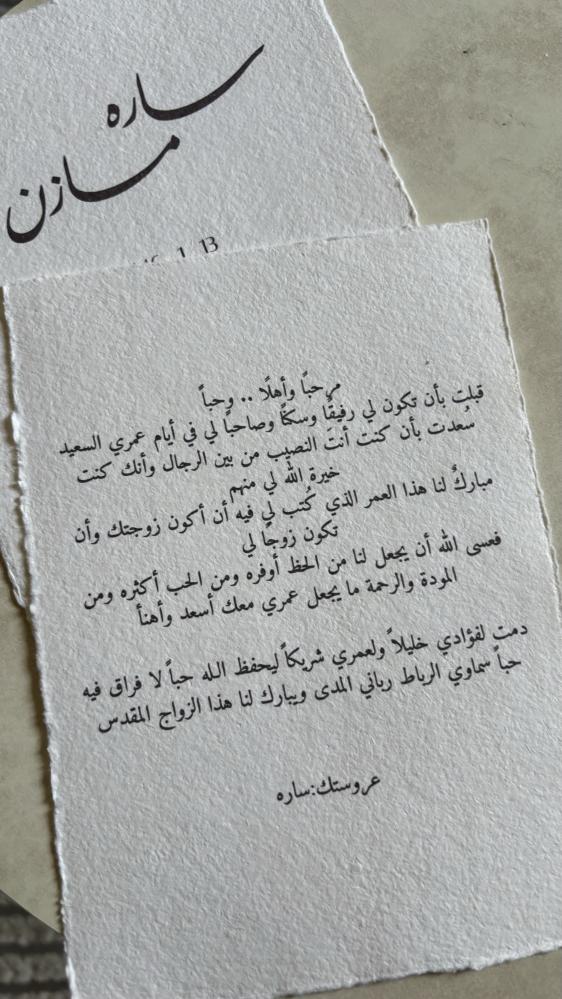 ساره
مازن
1 13
مرحبًا وأهلًا .. وحباً
قبلت بأن تكون لي رفيقًا وسكنًا وصاحبًا لي في أيام عمري السعيد
سُعدت بأن كنت أنتَ النصيب من بين الرجال وأنك كنت
خيرة الله لي منهم
مباركٌ لنا هذا العمر الذي كُتب لي فيه أن أكون زوجتك وأن
تكون زوجًا لي
فعسى الله أن يجعل لنا من الحظ أوفره ومن الحب أكثره ومن
المودة والرحمة ما يجعل عمري معك أسعد وأهنأ
دمت لفؤادي خليلاً ولعمري شريكاً ليحفظ الله حباً لا فراق فيه
حباً سماوي الرباط رباني المدى ويبارك لنا هذا الزواج المقدس
عروستك:ساره